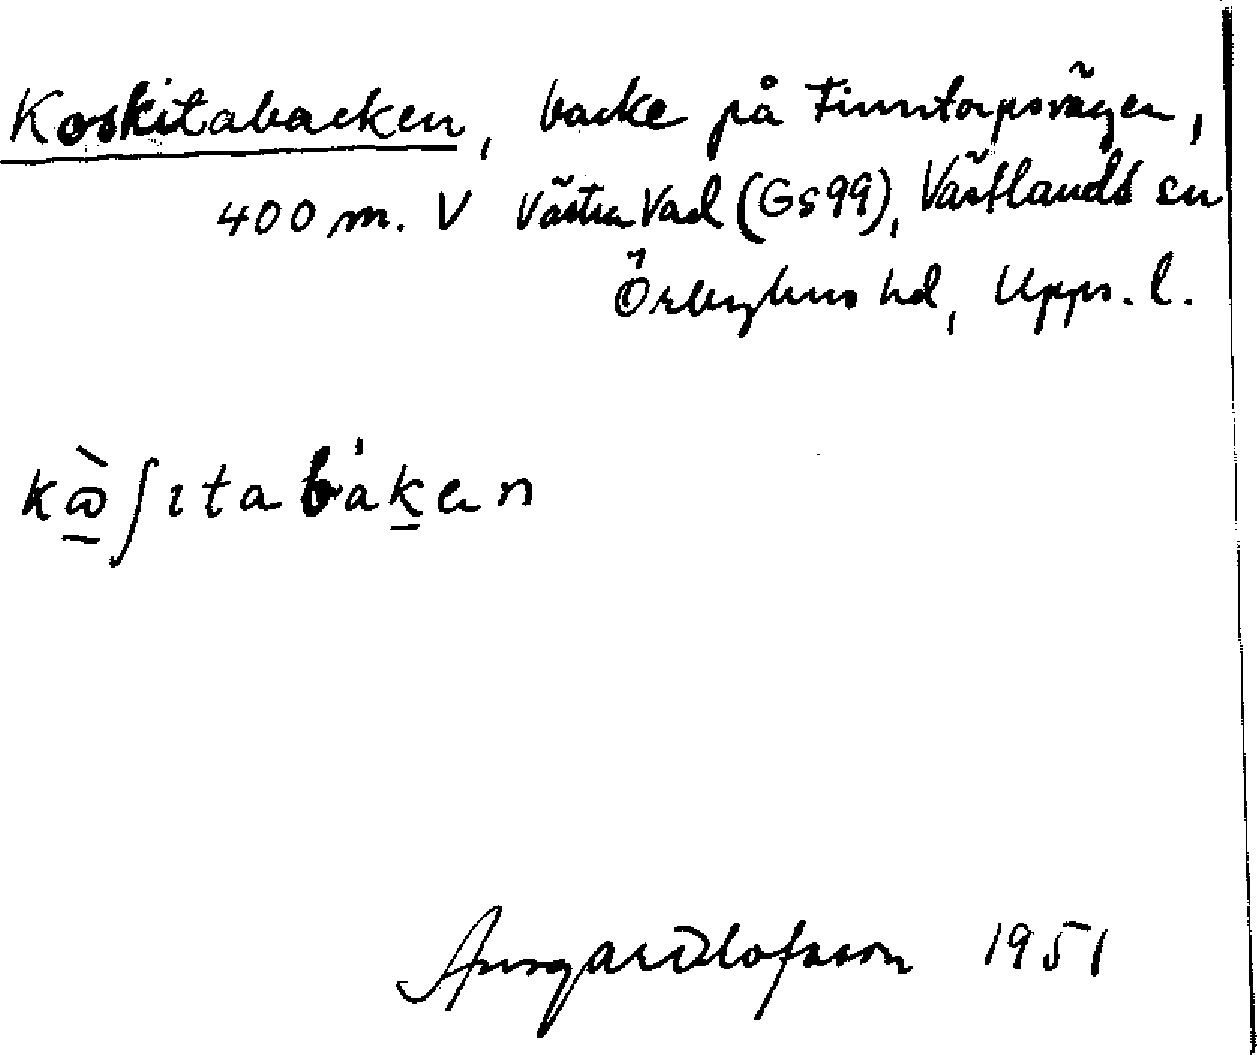 Koskitabacken, backe på Finntorpsvägen,
400 m. V Västra Vad (Gs99), Västlands sn
Örbyhus hd, Upps. l.
kɷ̀ʃıtabákan
Ansgar Olofsson 1951